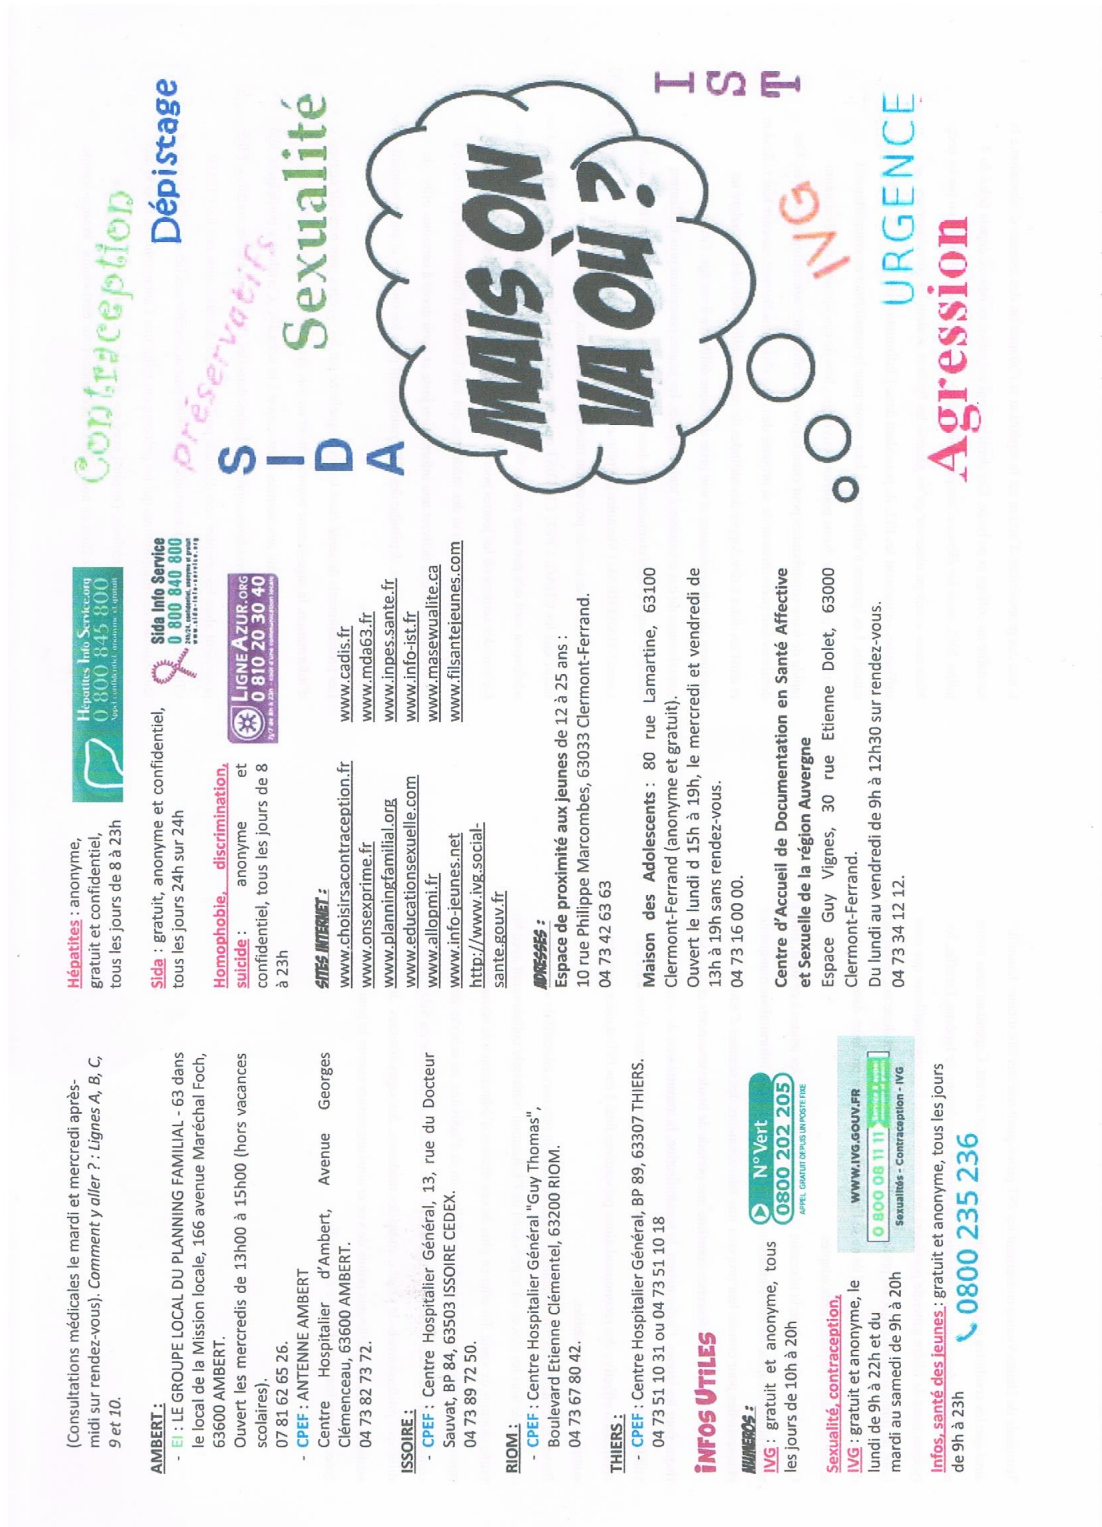 (Consultations médicales le mardi et mercredi après-
midi sur rendez-vous). Comment y aller ? : Lignes A, B, C,
9 et 10.
AMBERT :
- EI : LE GROUPE LOCAL DU PLANNING FAMILIAL - 63 dans
le local de la Mission locale, 166 avenue Maréchal Foch,
63600 AMBERT.
Ouvert les mercredis de 13h00 à 15h00 (hors vacances
scolaires).
07 81 62 65 26.
- CPEF : ANTENNE AMBERT
Centre Hospitalier d'Ambert, Avenue Georges
Clémenceau, 63600 AMBERT.
04 73 82 73 72.
ISSOIRE :
- CPEF : Centre Hospitalier Général, 13, rue du Docteur
Sauvat, BP 84, 63503 ISSOIRE CEDEX.
04 73 89 72 50.
RIOM :
- CPEF : Centre Hospitalier Général "Guy Thomas",
Boulevard Etienne Clémentel, 63200 RIOM.
04 73 67 80 42.
THIERS :
- CPEF : Centre Hospitalier Général, BP 89, 63307 THIERS.
04 73 51 10 31 ou 04 73 51 10 18
INFOS UTILES
NUMEROS :
IVG : gratuit et anonyme, tous
les jours de 10h à 20h
N° Vert
0800 202 205
APPEL GRATUIT DEPUIS UN POSTE FIXE
Sexualité, contraception,
IVG : gratuit et anonyme, le
lundi de 9h à 22h et du
mardi au samedi de 9h à 20h
WWW.IVG.GOUV.FR
0 800 08 11 11 Service & appel
Sexualités - Contraception - IVG
Infos, santé des jeunes : gratuit et anonyme, tous les jours
de 9h à 23h
0800 235 236
Hépatites : anonyme,
gratuit et confidentiel,
tous les jours de 8 à 23h
Hépatites Info Service.org
0 800 845 800
Appel confidentiel, anonyme et gratuit
Sida : gratuit, anonyme et confidentiel,
tous les jours 24h sur 24h
Sida Info Service
0 800 840 800
24h/24, confidentiel, anonyme et gratuit
www.sida-info-service.org
Homophobie, discrimination,
suicide : anonyme et
confidentiel, tous les jours de 8
à 23h
LIGNE AZUR.ORG
0 810 20 30 40
7j/7 de 8h à 23h - coût d'une communication locale
SITES INTERNET :
www.choisirsacontraception.fr
www.onsexprime.fr
www.planningfamilial.org
www.educationsexuelle.com
www.allopmi.fr
www.info-jeunes.net
http://www.ivg.social-
sante.gouv.fr
www.cadis.fr
www.mda63.fr
www.inpes.sante.fr
www.info-ist.fr
www.masexualite.ca
www.filsantejeunes.com
ADRESSES :
Espace de proximité aux jeunes de 12 à 25 ans :
10 rue Philippe Marcombes, 63033 Clermont-Ferrand.
04 73 42 63 63
Maison des Adolescents : 80 rue Lamartine, 63100
Clermont-Ferrand (anonyme et gratuit).
Ouvert le lundi d 15h à 19h, le mercredi et vendredi de
13h à 19h sans rendez-vous.
04 73 16 00 00.
Centre d'Accueil de Documentation en Santé Affective
et Sexuelle de la région Auvergne
Espace Guy Vignes, 30 rue Etienne Dolet, 63000
Clermont-Ferrand.
Du lundi au vendredi de 9h à 12h30 sur rendez-vous.
04 73 34 12 12.
Contraception
Dépistage
préservatifs
SIDA
Sexualité
MAIS ON
VA OÙ ?
IST
IVG
URGENCE
Agression